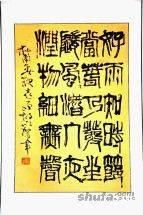 好雨知時節
當春乃發生
隨風潛入夜
潤物細無聲
shufa.com